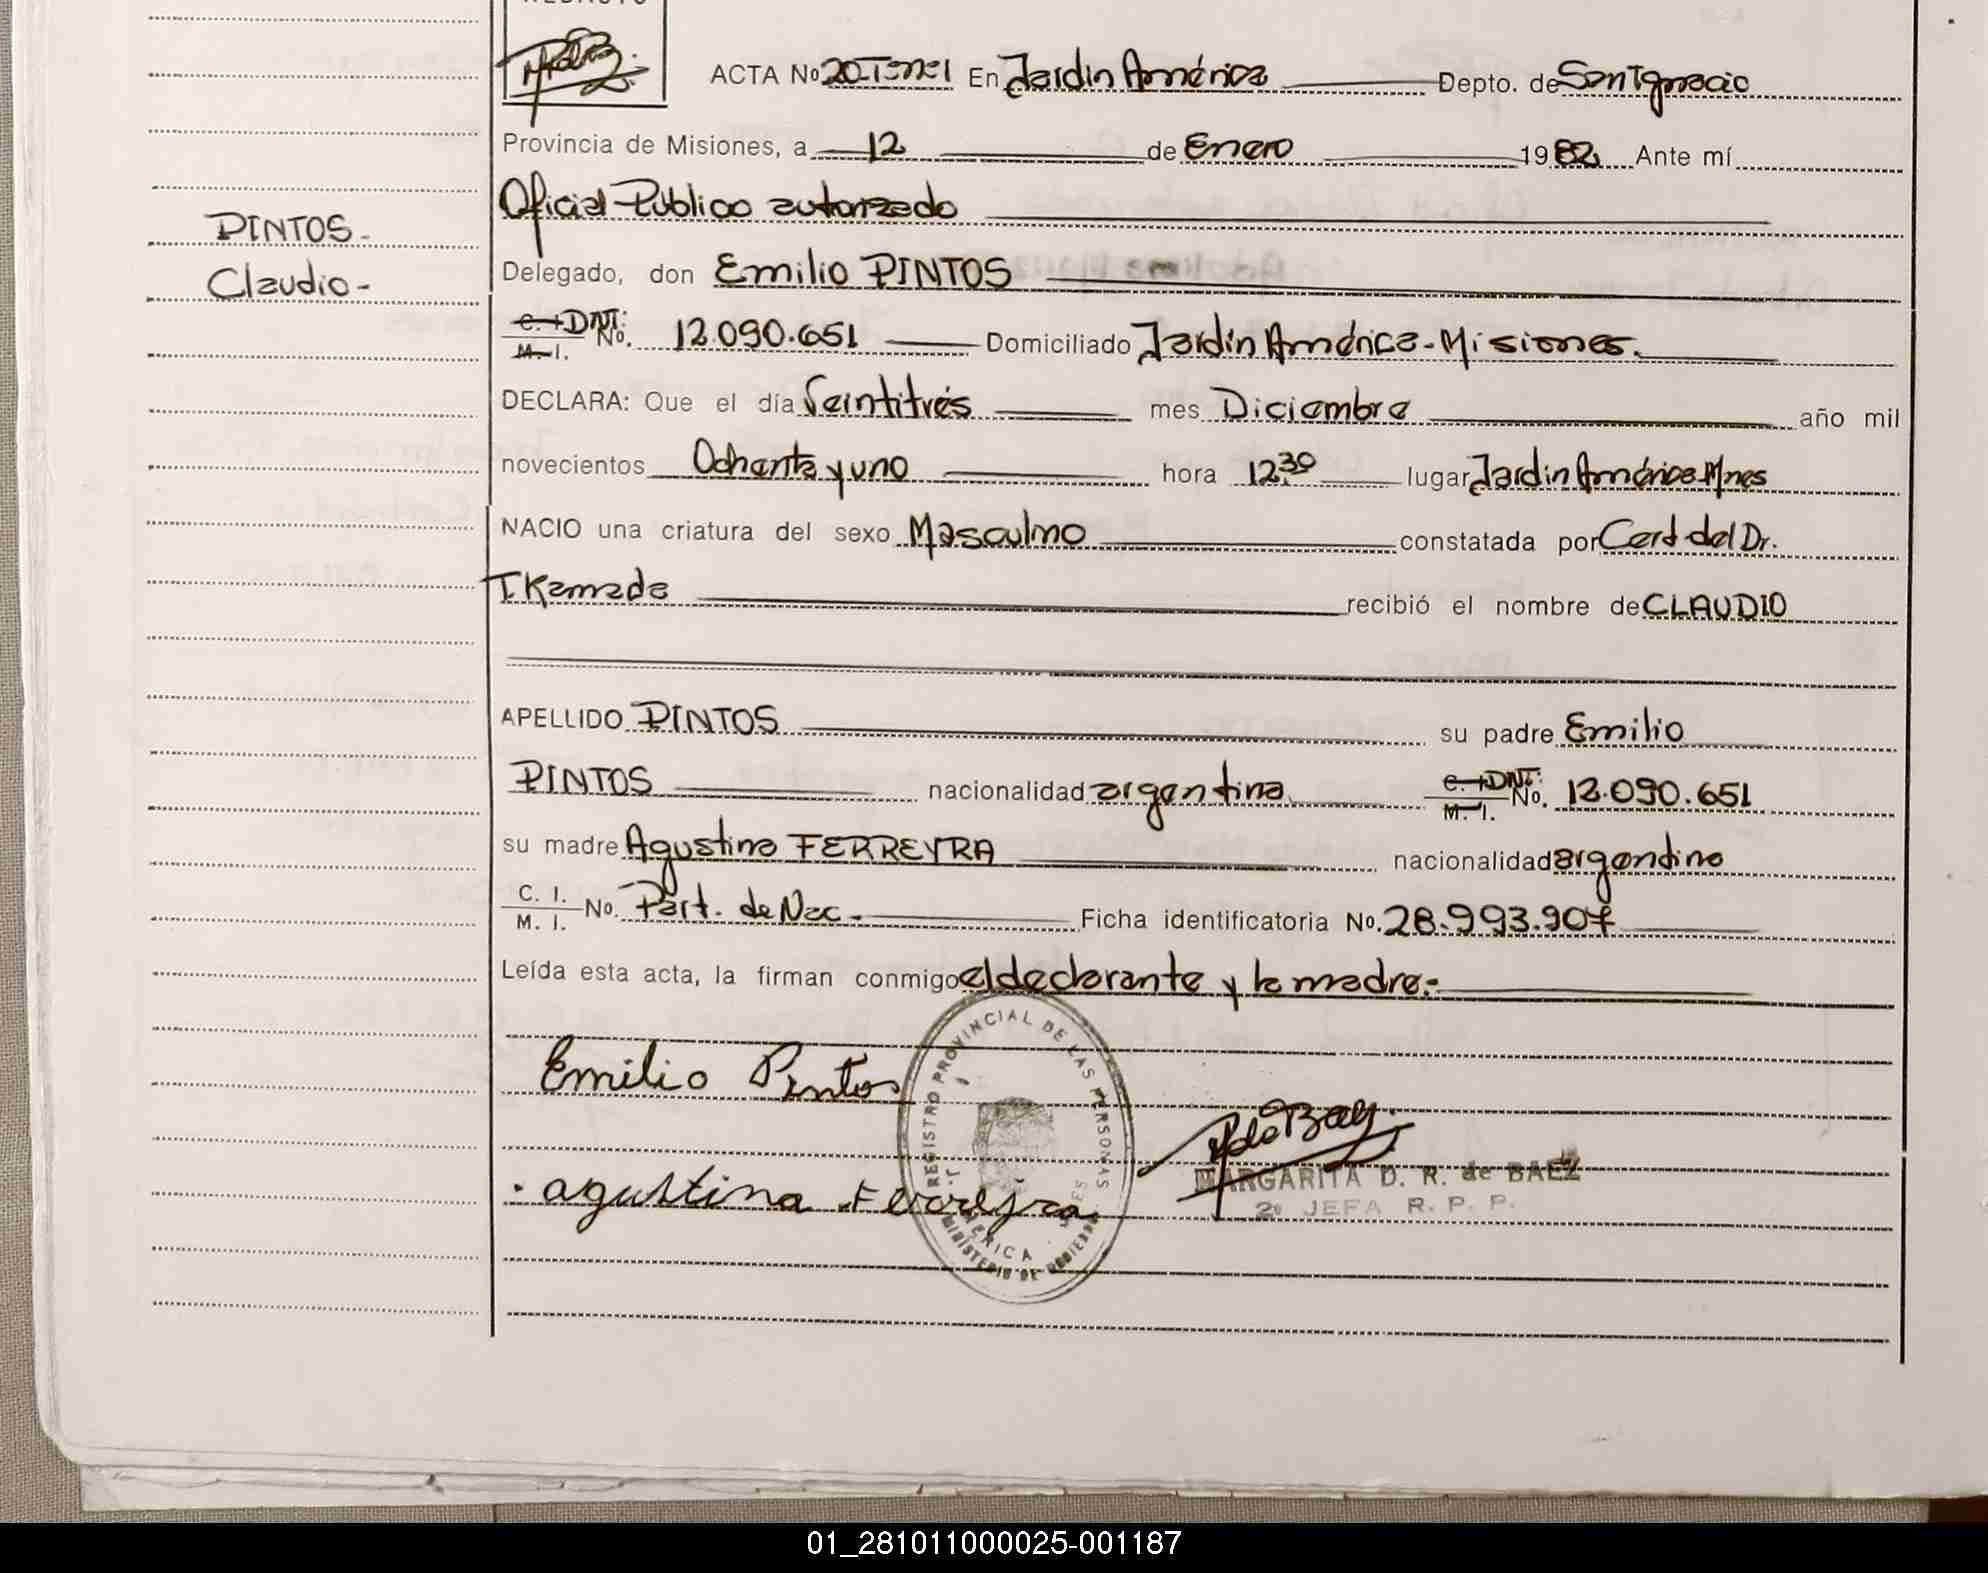 REDACTO
ACTA No 20-T-nº1 En Jardin América Depto. de San Ignacio
Provincia de Misiones, a 12 de Enero 1982 Ante mí
Oficial Publico autorizado
PINTOS-
Claudio-
Delegado, don Emilio PINTOS
C. I. DNI: M. I. No. 12.090.651 Domiciliado Jardín América-Misiones.
DECLARA: Que el día Veintitrés mes Diciembre año mil
novecientos Ochenta y uno hora 12,30 lugar Jardin América Mnes
NACIO una criatura del sexo Masculino constatada por Cert del Dr.
T Kamada recibió el nombre de CLAUDIO
APELLIDO PINTOS su padre Emilio
PINTOS nacionalidad argentina C. I. DNI: M. I. No. 12.090.651
su madre Agustina FERREYRA nacionalidad argentina
C. I. M. I. No. Part. de Nac. Ficha identificatoria No. 28.993.907
Leída esta acta, la firman conmigo el declarante y la madre.-
Emilio Pintos
REGISTRO PROVINCIAL DE LAS PERSONAS
MINISTERIO DE GOBIERNO
agustina Ferreyra
MARGARITA D. R. de BAEZ
2º JEFA R. P. P.
01_281011000025-001187